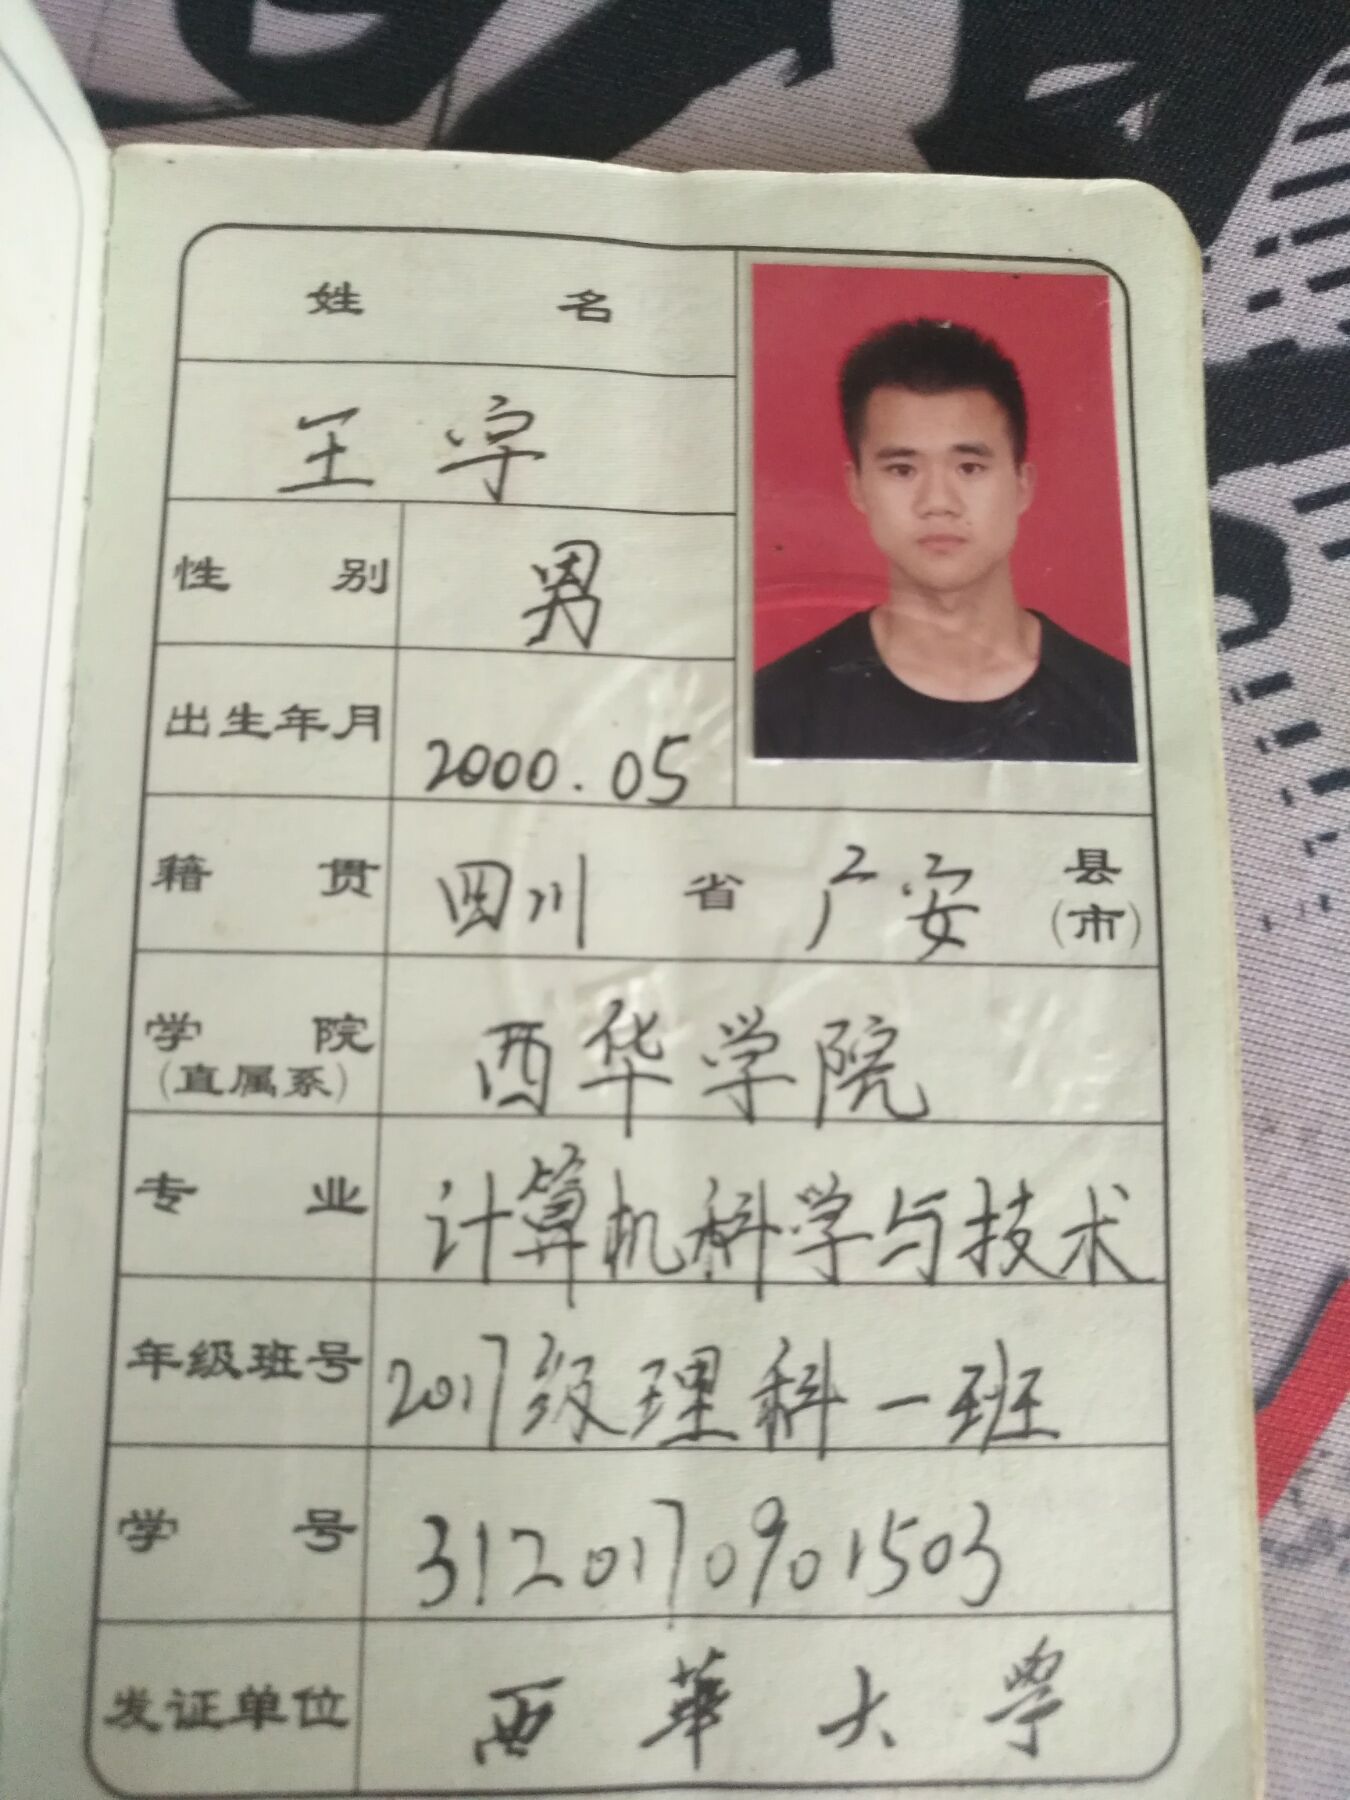 姓名
王宇
性别 男
出生年月 2000.05
籍贯 四川 省 广安 县(市)
学院(直属系) 西华学院
专业 计算机科学与技术
年级班号 2017级理科一班
学号 3120170901503
发证单位 西華大学